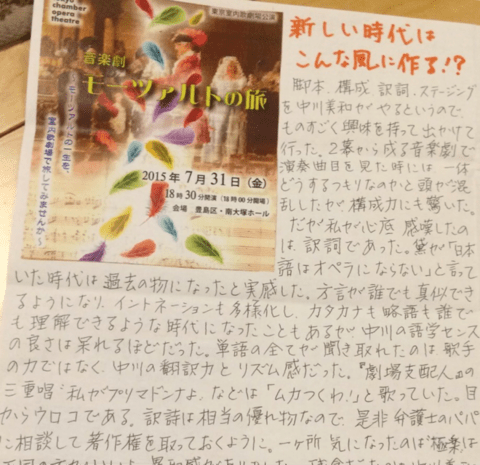 chamber opera theatre
東京室内歌劇場公演
音楽劇
モーツァルトの旅
～モーツァルトの一生を、
室内歌劇場で旅してみませんか～
2015年7月31日（金）
18時30分開演（18時00分開場）
会場 豊島区・南大塚ホール
新しい時代は
こんな風に作る!?
脚本、構成、訳詞、ステージング
を中川美和がやるというので、
ものすごく興味を持って出かけて
行った。2幕から成る音楽劇で
演奏曲目を見た時には一体
どうするつもりなのかと頭が混
乱したが構成力にも驚いた。
だが私が心底感嘆したの
は訳詞であった。黛が「日本
語はオペラにならない」と言って
いた時代は過去の物になったと実感した。方言が誰でも真似でき
るようになり、イントネーションも多様化し、カタカナも略語も誰で
も理解できるような時代になったこともあるが中川の語学センス
の良さは呆れるほどだった。単語の全てが聞き取れたのは歌手
の力ではなく、中川の翻訳力とリズム感だった。『劇場支配人』の
三重唱“私がプリマドンナよ”などは「ムカつくわ!」と歌っていた。目
からウロコである。訳詩は相当の優れ物なので、是非弁護士のパパ
に相談して著作権を取っておくように。一ヶ所気になったのは“極楽”は